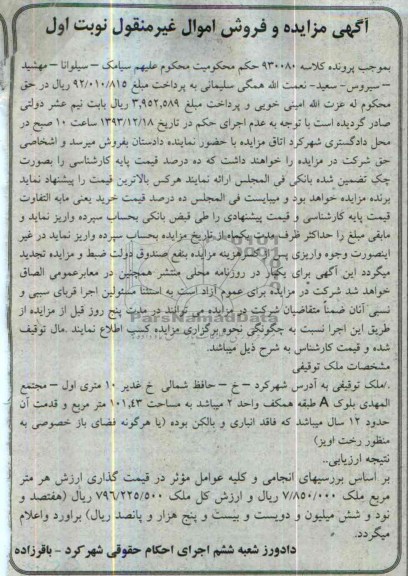 آگهی مزایده و فروش اموال غیرمنقول نوبت اول
بموجب پرونده کلاسه ۹۳۰۰۸۰ حکم محکومیت محکوم علیهم سیامک – سیلوانا – مهشید
– سیروس- سعید- نعمت الله همگی سلیمانی به پرداخت مبلغ ۹۲/۰۱۰/۸۱۵ ریال در حق
محکوم له عزت الله امینی خویی و پرداخت مبلغ ۳,۹۵۲,۵۸۹ ریال بابت نیم عشر دولتی
صادر گردیده است با توجه به عدم اجرای حکم در تاریخ ۱۳۹۳/۱۲/۱۸ ساعت ۱۰ صبح در
محل دادگستری شهرکرد اتاق مزایده با حضور نماینده دادستان بفروش میرسد و اشخاصی
حق شرکت در مزایده را خواهند داشت که ده درصد قیمت پایه کارشناسی را بصورت
چک تضمین شده بانکی فی المجلس ارائه نمایند هرکس بالاترین قیمت را پیشنهاد نماید
برنده مزایده خواهد بود و میبایست فی المجلس ده درصد قیمت خرید یعنی مابه التفاوت
قیمت پایه کارشناسی و قیمت پیشنهادی را طی قبض بانکی بحساب سپرده واریز نماید و
مابقی مبلغ را حداکثر ظرف مدت یکماه از تاریخ مزایده بحساب سپرده واریز نماید در غیر
اینصورت وجوه واریزی پس از کسر هزینه مزایده بنفع صندوق دولت ضبط و مزایده تجدید
میگردد این آگهی برای یکبار در روزنامه محلی منتشر همچنین در معابرعمومی الصاق
خواهد شد شرکت در مزایده برای عموم آزاد است به استثنا مسئولین اجرا قربای سببی و
نسبی آنان ضمنا متقاضیان شرکت در مزایده می توانند در مدت پنج روز قبل از مزایده از
طریق این اجرا نسبت به چگونگی نحوه برگزاری مزایده کسب اطلاع نمایند .مال توقیف
شده و قیمت کارشناس به شرح ذیل میباشد.
مشخصات ملک توقیفی
./ملک توقیفی به آدرس شهرکرد – خ – حافظ شمالی خ غدیر ۱۰ متری اول – مجتمع
المهدی بلوک A طبقه همکف واحد ۲ میباشد به مساحت ۱۰۱,۴۳ متر مربع و قدمت آن
حدود ۱۲ سال میباشد که فاقد انباری و بالکن بوده (یا هرگونه فضای باز خصوصی به
منظور رخت اویز)
نتیجه ارزیابی..
بر اساس بررسیهای انجامی و کلیه عوامل مؤثر در قیمت گذاری ارزش هر متر
مربع ملک ۷/۸۵۰/۰۰۰ ریال و ارزش کل ملک ۷۹۶/۲۲۵/۵۰۰ ریال (هفتصد و
نود و شش میلیون و دویست و بیست و پنج هزار و پانصد ریال) براورد واعلام
میگردد.
دادورز شعبه ششم اجرای احکام حقوقی شهرکرد - باقرزاده
ParsNamadData